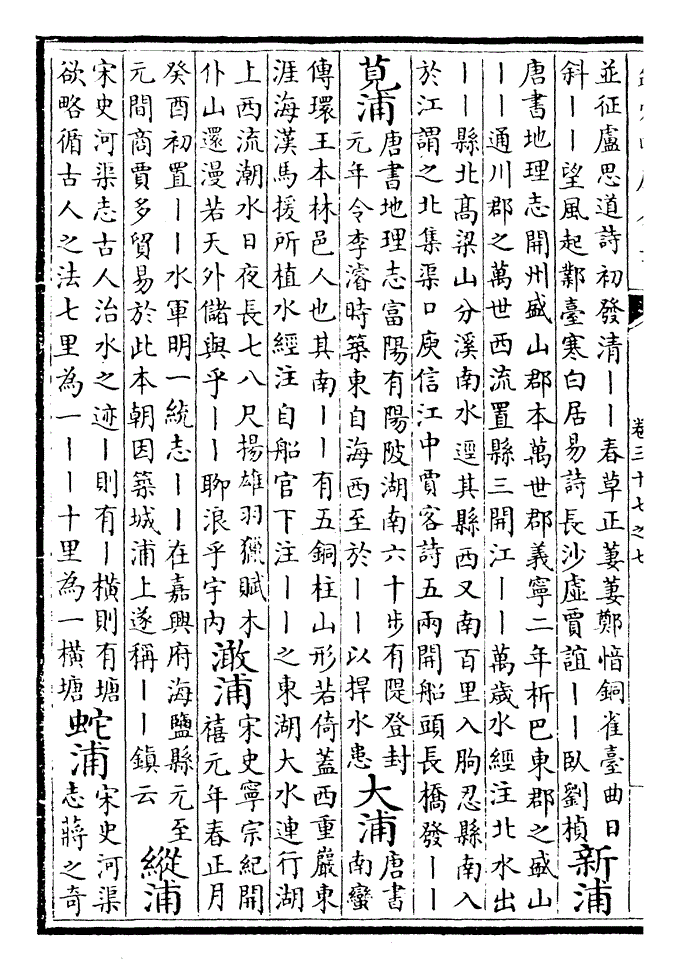 卷三十七之七
並征盧思道詩初發清丨丨春草正萋萋鄭愔銅雀臺曲日
斜丨丨望風起鄴臺寒白居易詩長沙虛賈誼丨丨臥劉楨
新浦
唐書地理志開州盛山郡本萬世郡義寧二年析巴東郡之盛山
丨丨通川郡之萬世西流置縣三開江丨丨萬歲水經注北水出
丨丨縣北高梁山分溪南水逕其縣西又南百里入朐忍縣南入
於江謂之北集渠口庾信江中賈客詩五兩開船頭長橋發丨丨
莧浦
唐書地理志富陽有陽陂湖南六十步有隄登封
元年令李濬時築東自海西至於丨丨以捍水患
大浦
唐書
南蠻
傳環王本林邑人也其南丨丨有五銅柱山形若倚蓋西重巖東
涯海漢馬援所植水經注自船官下注丨丨之東湖大水連行湖
上西流潮水日夜長七八尺揚雄羽獵賦木
仆山還漫若天外儲與乎丨丨聊浪乎宇內
澉浦
宋史寧宗紀開
禧元年春正月
癸酉初置丨丨水軍明一統志丨丨在嘉興府海鹽縣元至
元間商賈多貿易於此本朝因築城浦上遂稱丨丨鎮云
縱浦
宋史河渠志古人治水之迹丨則有丨橫則有塘
欲略循古人之法七里為一丨丨十里為一橫塘
蛇浦
宋史河渠
志蔣之奇